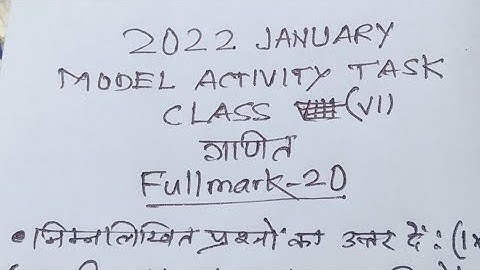 2022 JANUARY
MODEL ACTIVITY TASK
CLASS (VI)
गणित
Fullmark-20
• निम्नलिखित प्रश्नों का उत्तर दें: (1×